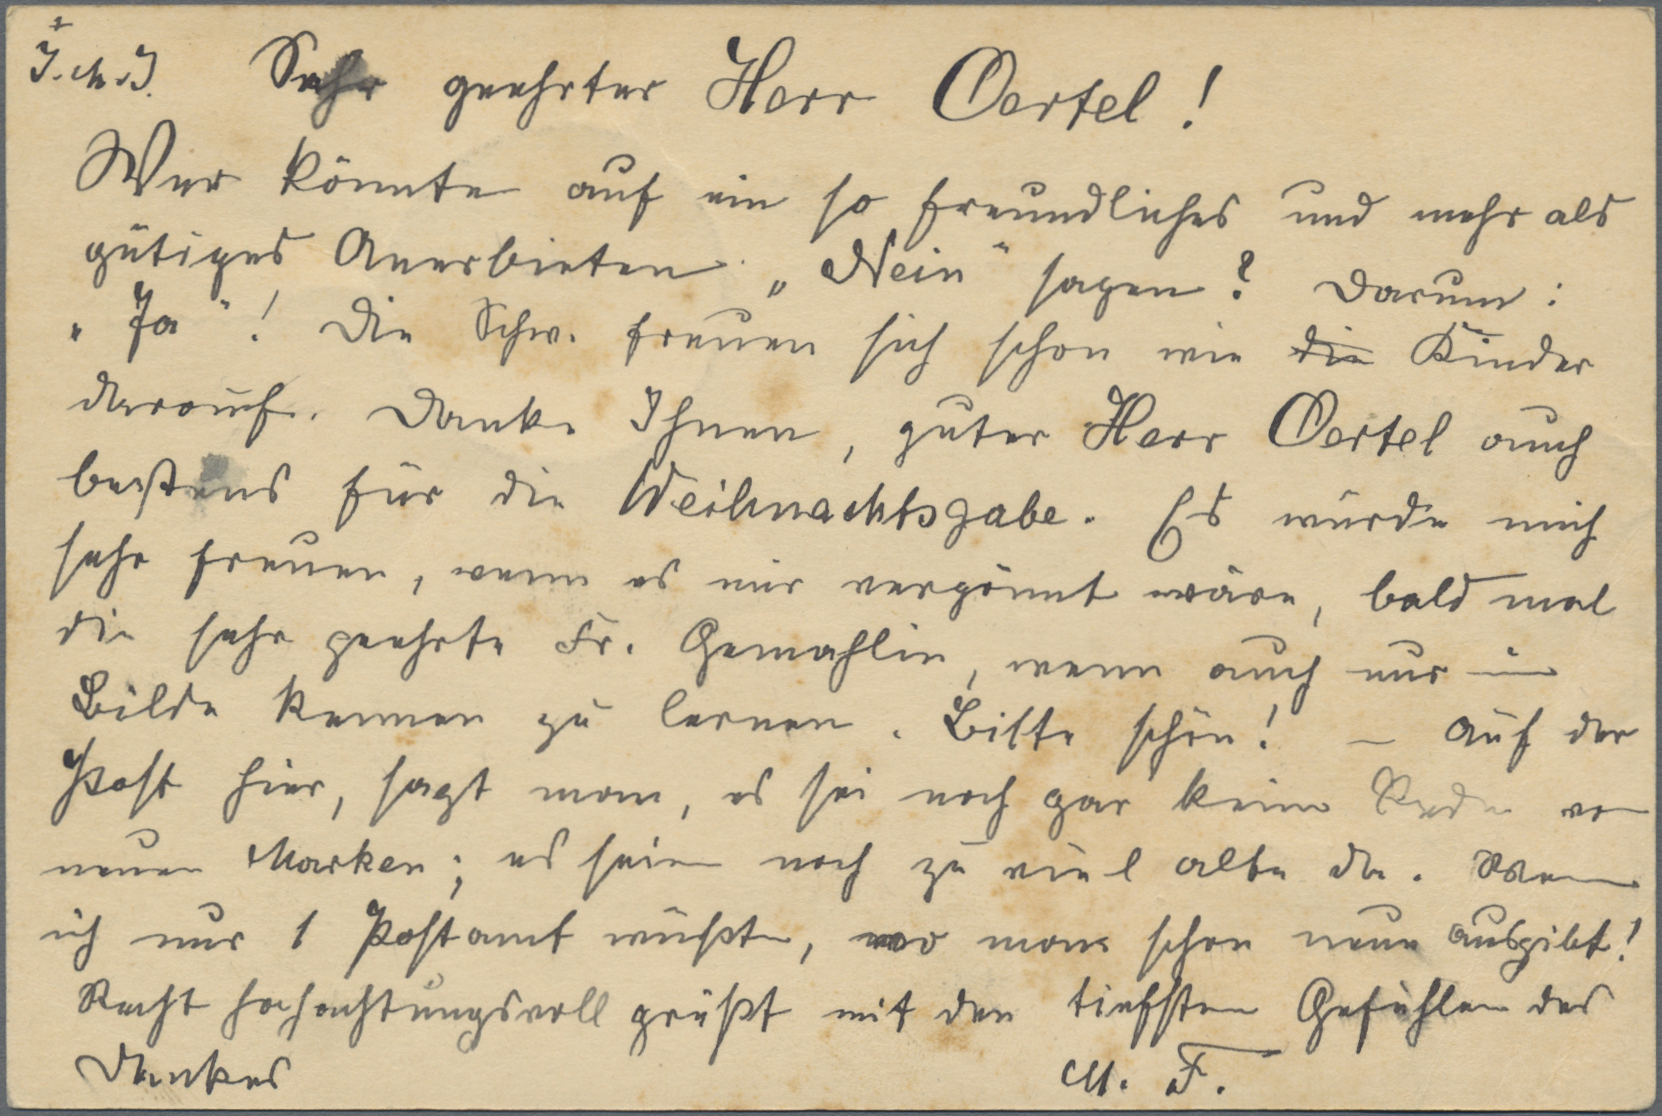 J. M. J. Sehr geehrter Herr Oertel!
Wer könnte auf ein so freundliches und mehr als
gütiges Anerbieten „Nein“ sagen? Darum:
„Ja“! Die Schw. freuen sich schon wie die Kinder
darauf. Danke Ihnen, guter Herr Oertel auch
bestens für die Weihnachtsgabe. Es würde mich
sehr freuen, wenn es mir vergönnt wäre, bald mal
die sehr geehrte Fr. Gemahlin, wenn auch nur im
Bilde kennen zu lernen. Bitte schön! – Auf der
Post hier, sagt man, es sei noch gar keine Rede von
neuen Marken; es seien noch zu viel alte da. Wenn
ich nur 1 Postamt wüßte, wo man schon neue ausgibt!
Recht hochachtungsvoll grüßt mit den tiefsten Gefühlen des
Dankes M. F.